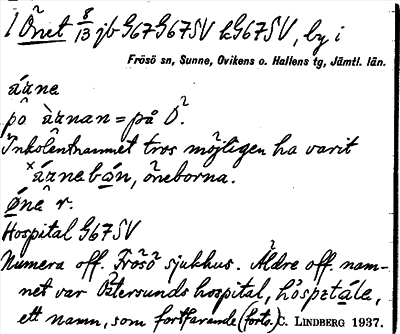 1 Önet 8/13 jb G67G67SV kG67SV, by i
Frösö sn, Sunne, Ovikens o. Hallens tg, Jämtl. län.
árne
pô àrnan = på Ö.
Inkolentnamnet tros möjligen ha varit
×árnebän, öneborna.
ønę r.
Hospital G67SV
Numera off. Frösö sjukhus. Äldre off. nam-
net var Östersunds hospital, håspɛtále,
ett namn, som fortfarande (forts.) C. LINDBERG 1937.